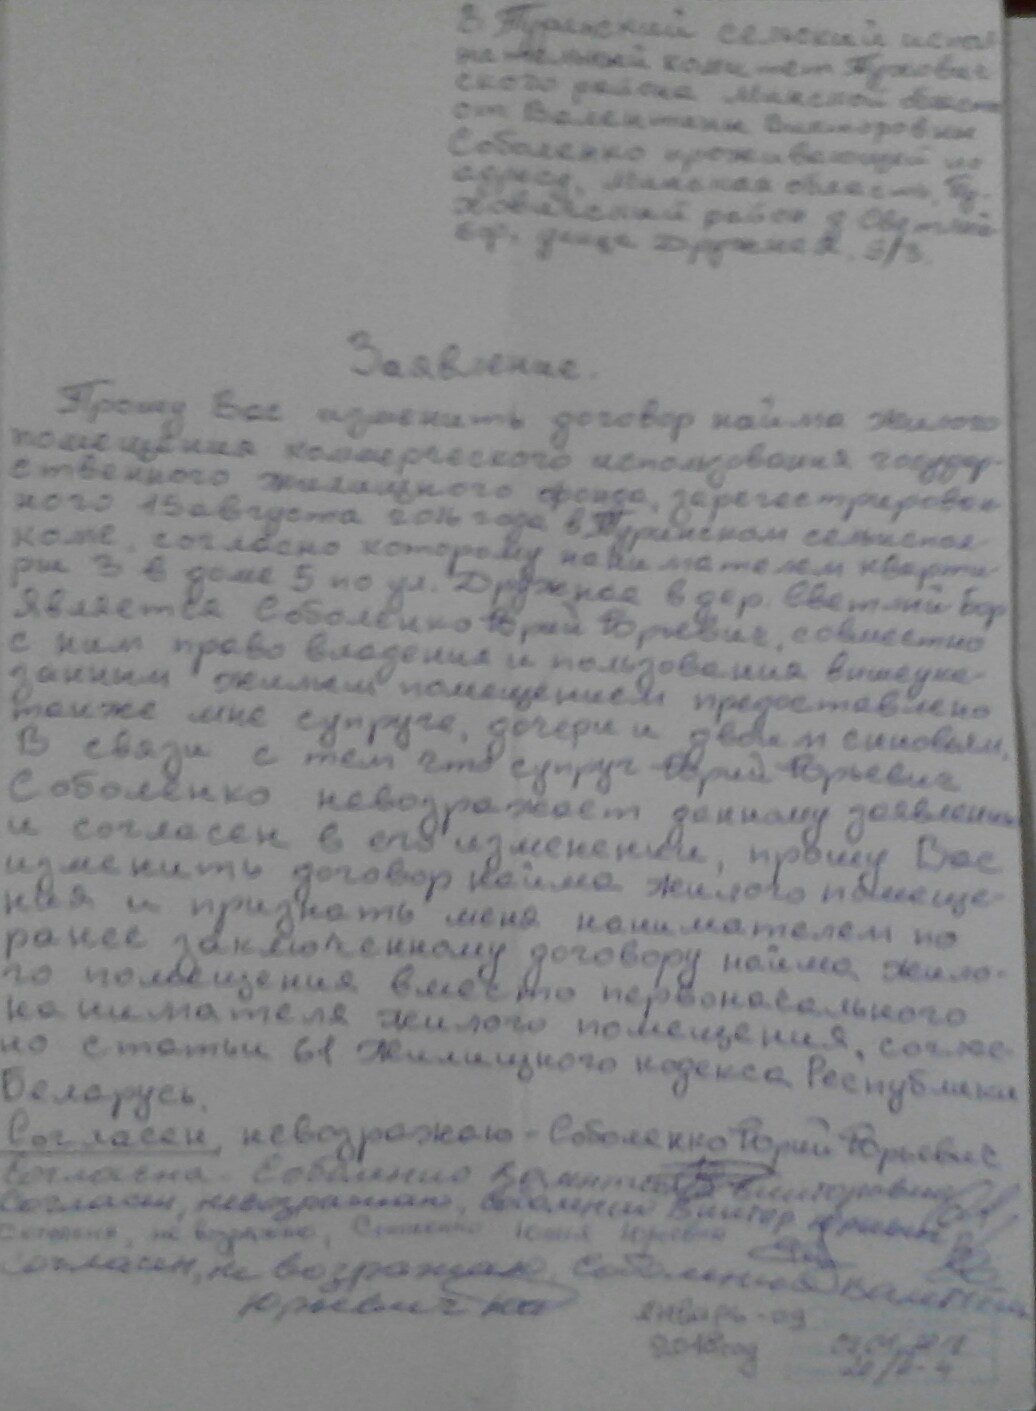 В Туринский сельский испол-
нительный комитет Пухович-
ского района Минской области
от Валентины Викторовны
Соболенко проживающей по
адресу, Минская область, Пу-
ховичский район д Светлый
бор. улица Дружная 5/3.
Заявление.
Прошу Вас изменить договор найма жилого
помещения коммерческого использования государ-
ственного жилищного фонда, зарегестрирован-
ного 15 августа 2016 года в Туринском сельиспол-
коме, согласно которому нанимателем кварти-
ры 3 в доме 5 по ул. Дружная в дер. Светлый Бор
является Соболенко Юрий Юрьевич, совместно
с ним право владения и пользования вышеука-
занным жилым помещением предоставлено
также мне супруге, дочери и двоим сыновьям.
В связи с тем что супруг Юрий Юрьевич
Соболенко невозражает данному заявлению
и согласен в его изменении, прошу Вас
изменить договор найма жилого помеще-
ния и признать меня нанимателем по
ранее заключенному договору найма жило-
го помещения вместо первоначального
нанимателя жилого помещения, соглас-
но статьи 61 Жилищного кодекса Республики
Беларусь.
Согласен, невозражаю - Соболенко Юрий Юрьевич
Согласна - Соболенко Викторовна
Согласен, невозражаю, Соболенко Виктор Юрьевич
Согласна, не возражаю, Юлия Юрьевна
Согласен, не возражаю Соболенко
Юрьевич
январь - 09
2018 год